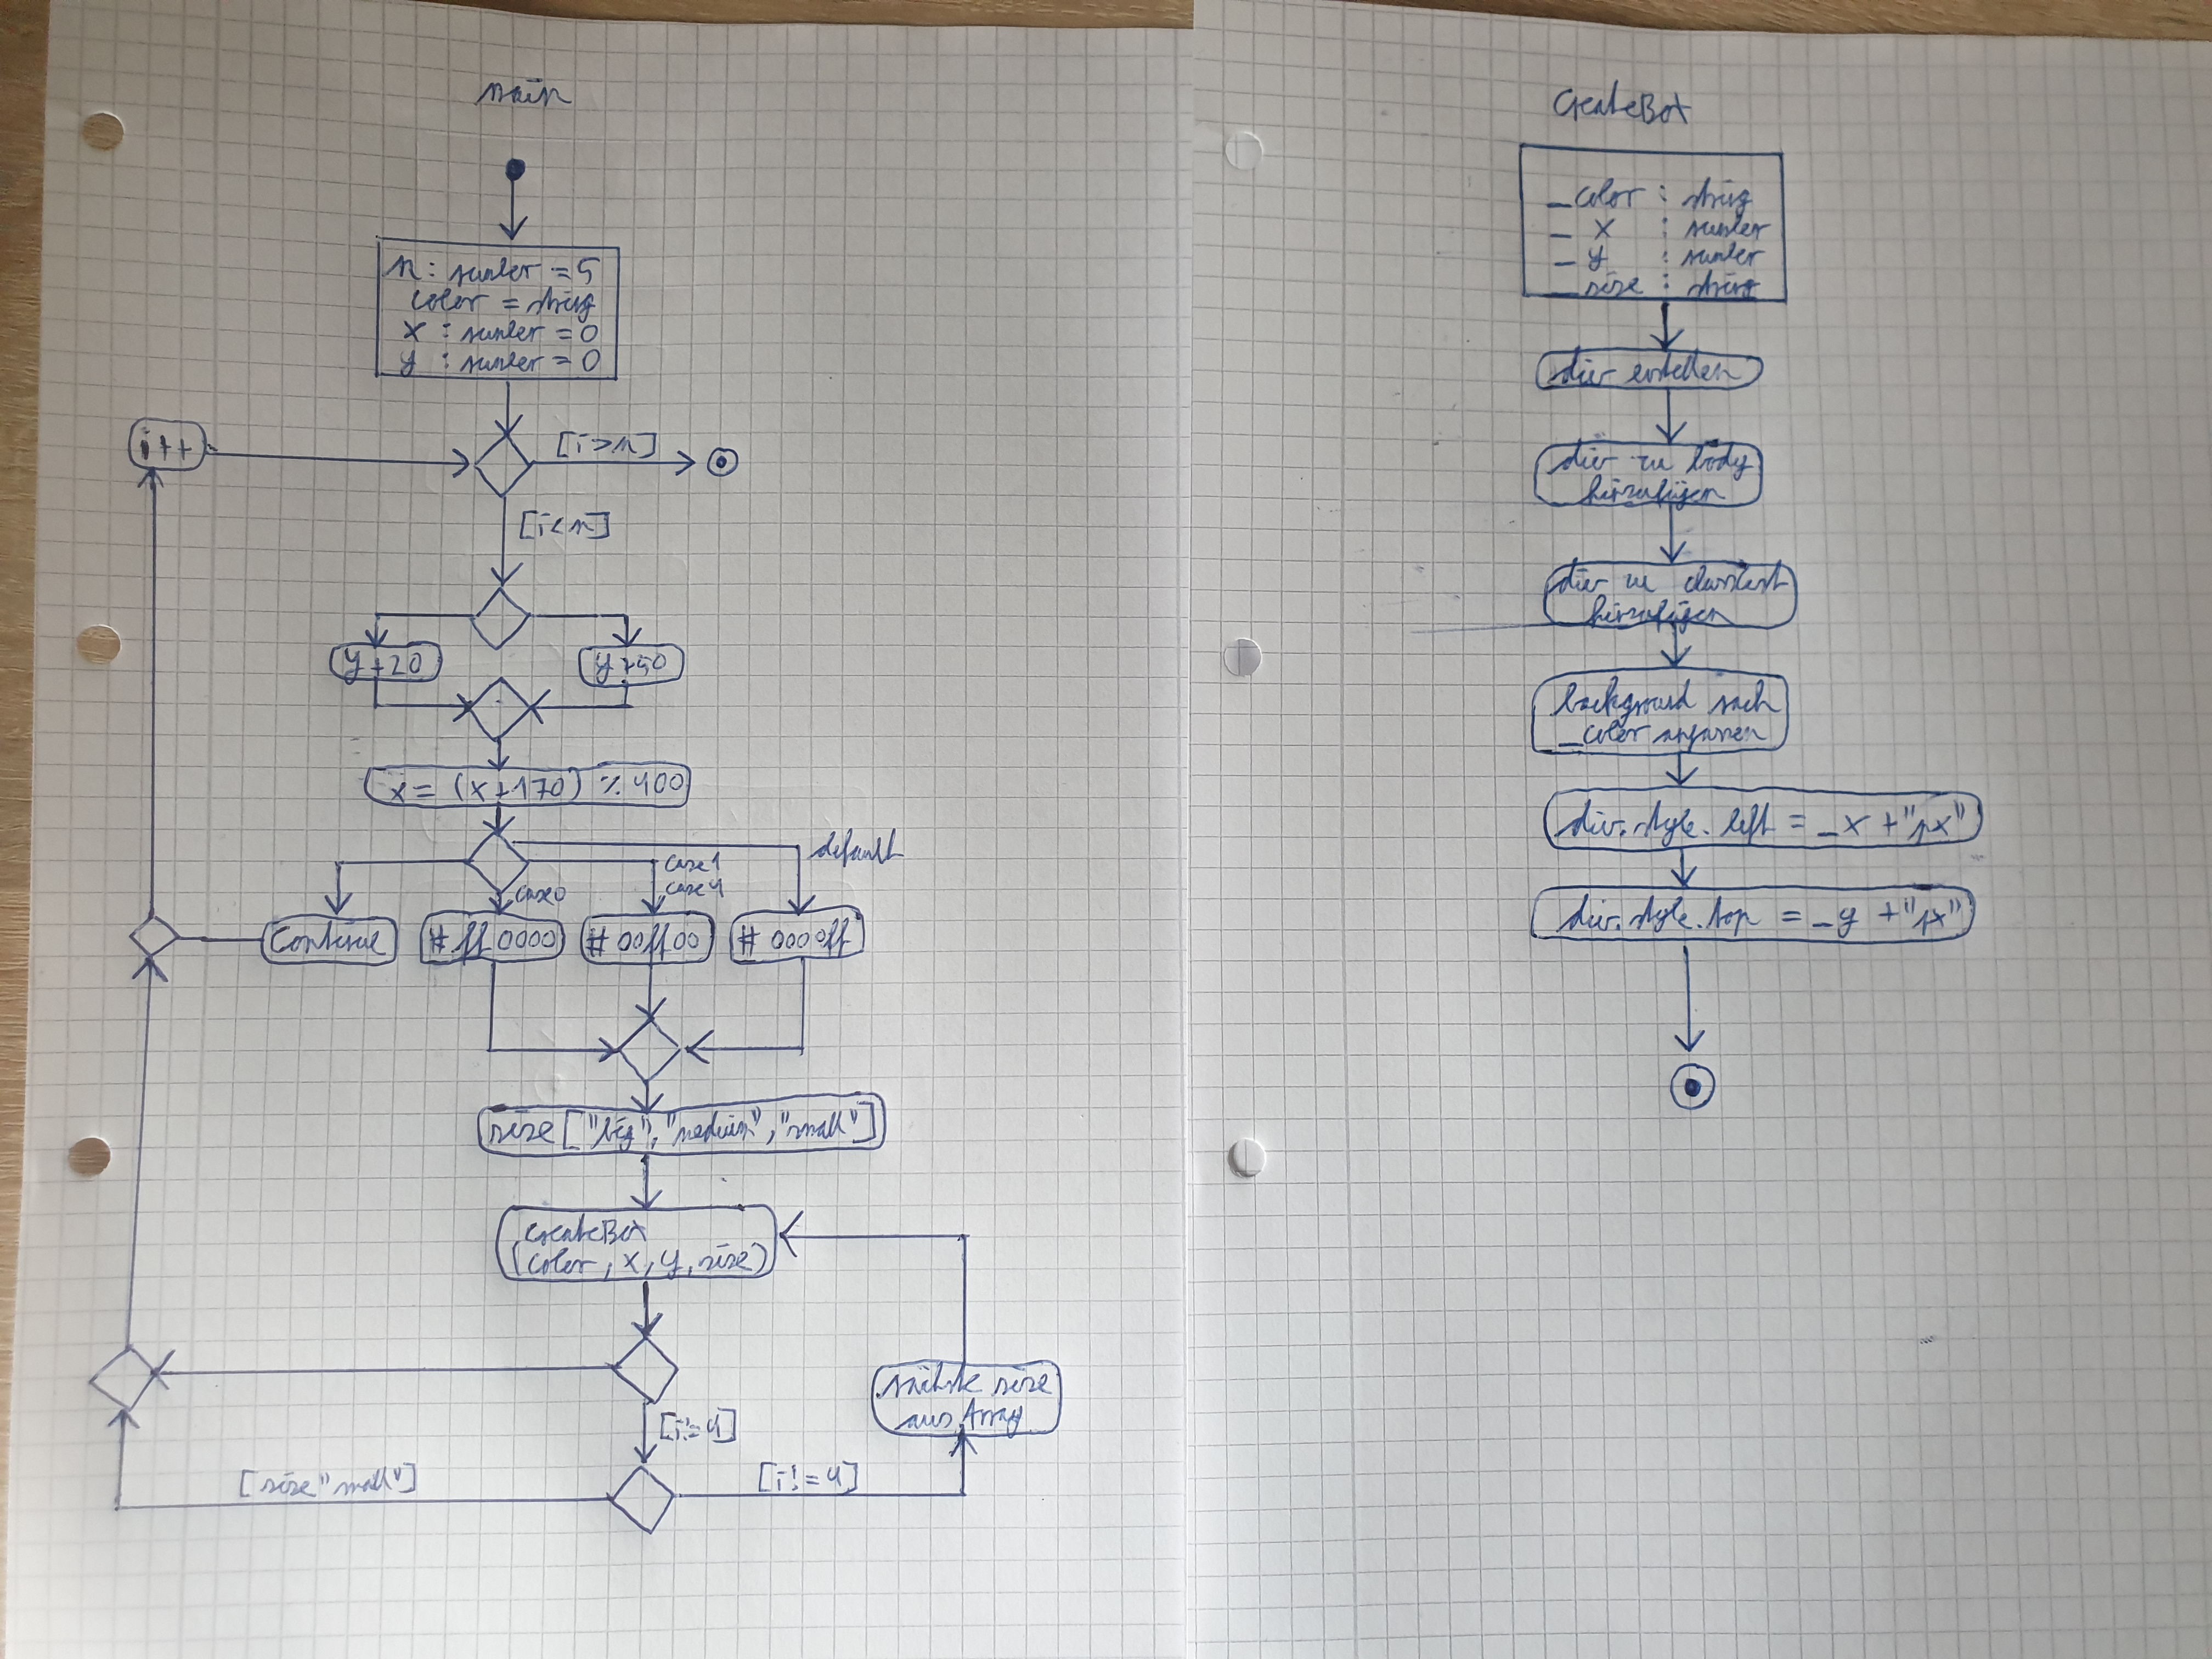 main
n : number = 5
color = string
x : number = 0
y : number = 0
i++
[i>n]
[i<n]
y+20
x = (x+170) % 400
case0
case1
case4
default
Continue
#ff0000
#00ff00
#0000ff
size ["big", "medium", "small"]
CreateBox
(color, x, y, size)
[i=4]
[size "small"]
[i!=4]
nächste size
aus Array
CreateBox
_color : string
_x : number
_y : number
size : string
div erstellen
div zu body
hinzufügen
div zu
hinzufügen
background nach
_color anpassen
div.style.left = _x + "px"
div.style.top = _y + "px"